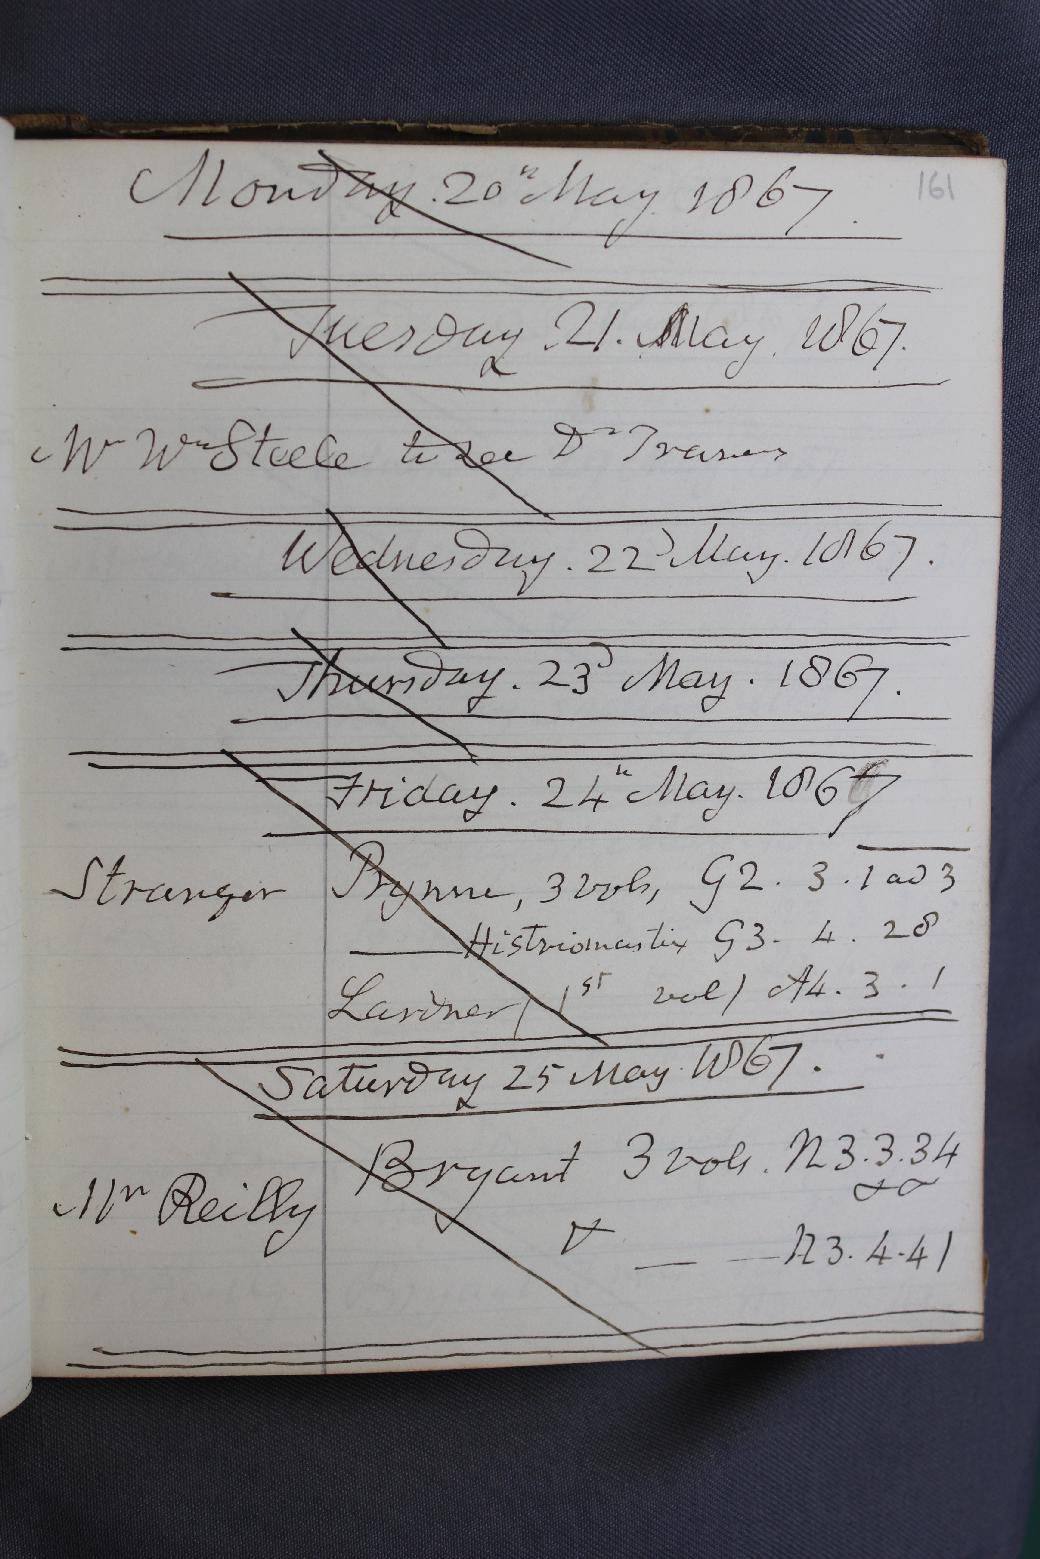 161
Monday. 20th May 1867.
Tuesday 21. May. 1867.
Mr Wm Steele to see Dr Travers
Wednesday. 22d May. 1867.
Thursday. 23d May. 1867.
Friday. 24th May. 1867
Stranger Prynne, 3 vols, G2. 3. 1 ad 3
—— Histriomastix G3. 4. 28
Lardner (1st vol) A4. 3. 1
Saturday 25 May. 1867.
Bryant 3 vols. N3.3.34
Mr Reilly
& — — N3.4.41